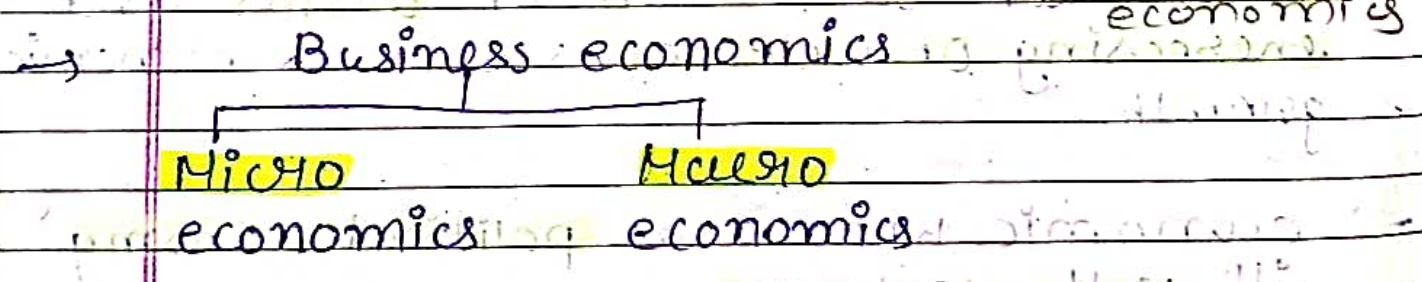 economics
Business economics
Micro Macro
economics economics